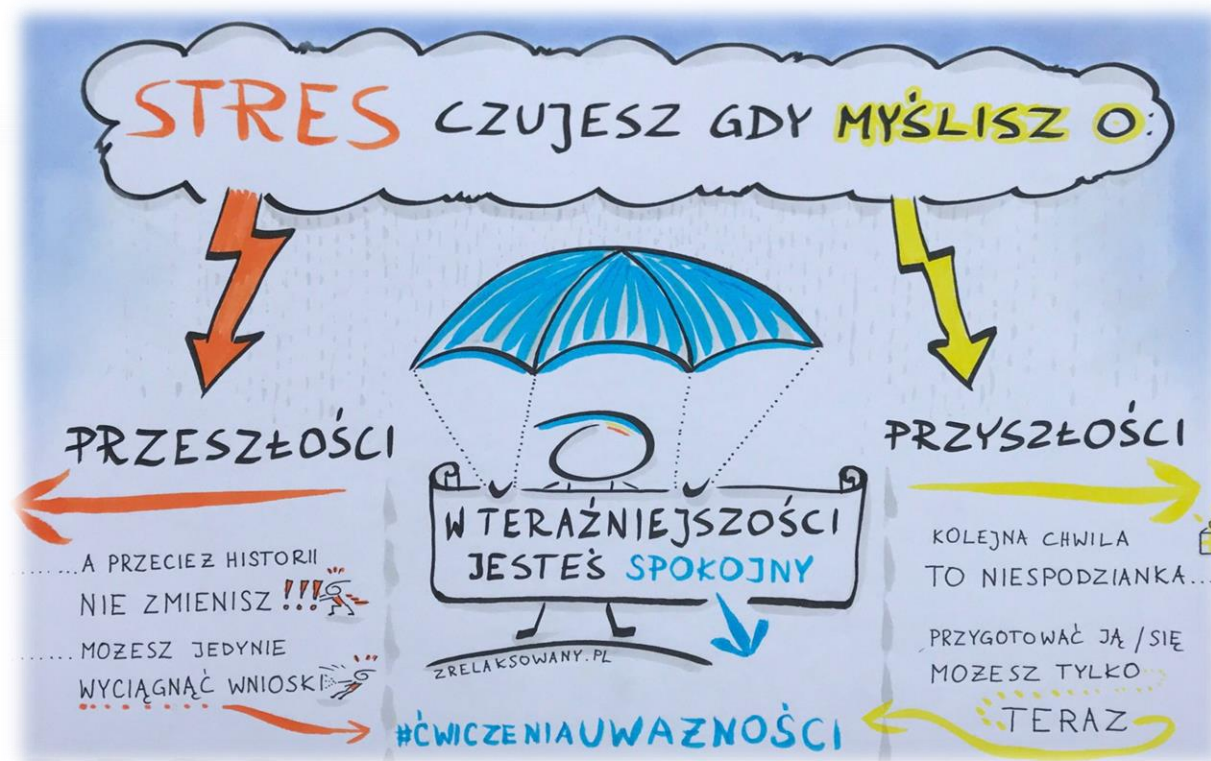 STRES CZUJESZ GDY MYŚLISZ O:
PRZESZŁOŚCI
.......A PRZECIEŻ HISTORII
NIE ZMIENISZ !!!
...... MOŻESZ JEDYNIE
WYCIĄGNĄĆ WNIOSKI
W TERAŹNIEJSZOŚCI
JESTEŚ SPOKOJNY
ZRELAKSOWANY.PL
#ĆWICZENIAUWAŻNOŚCI
PRZYSZŁOŚCI
KOLEJNA CHWILA
TO NIESPODZIANKA...
PRZYGOTOWAĆ JĄ / SIĘ
MOŻESZ TYLKO
TERAZ